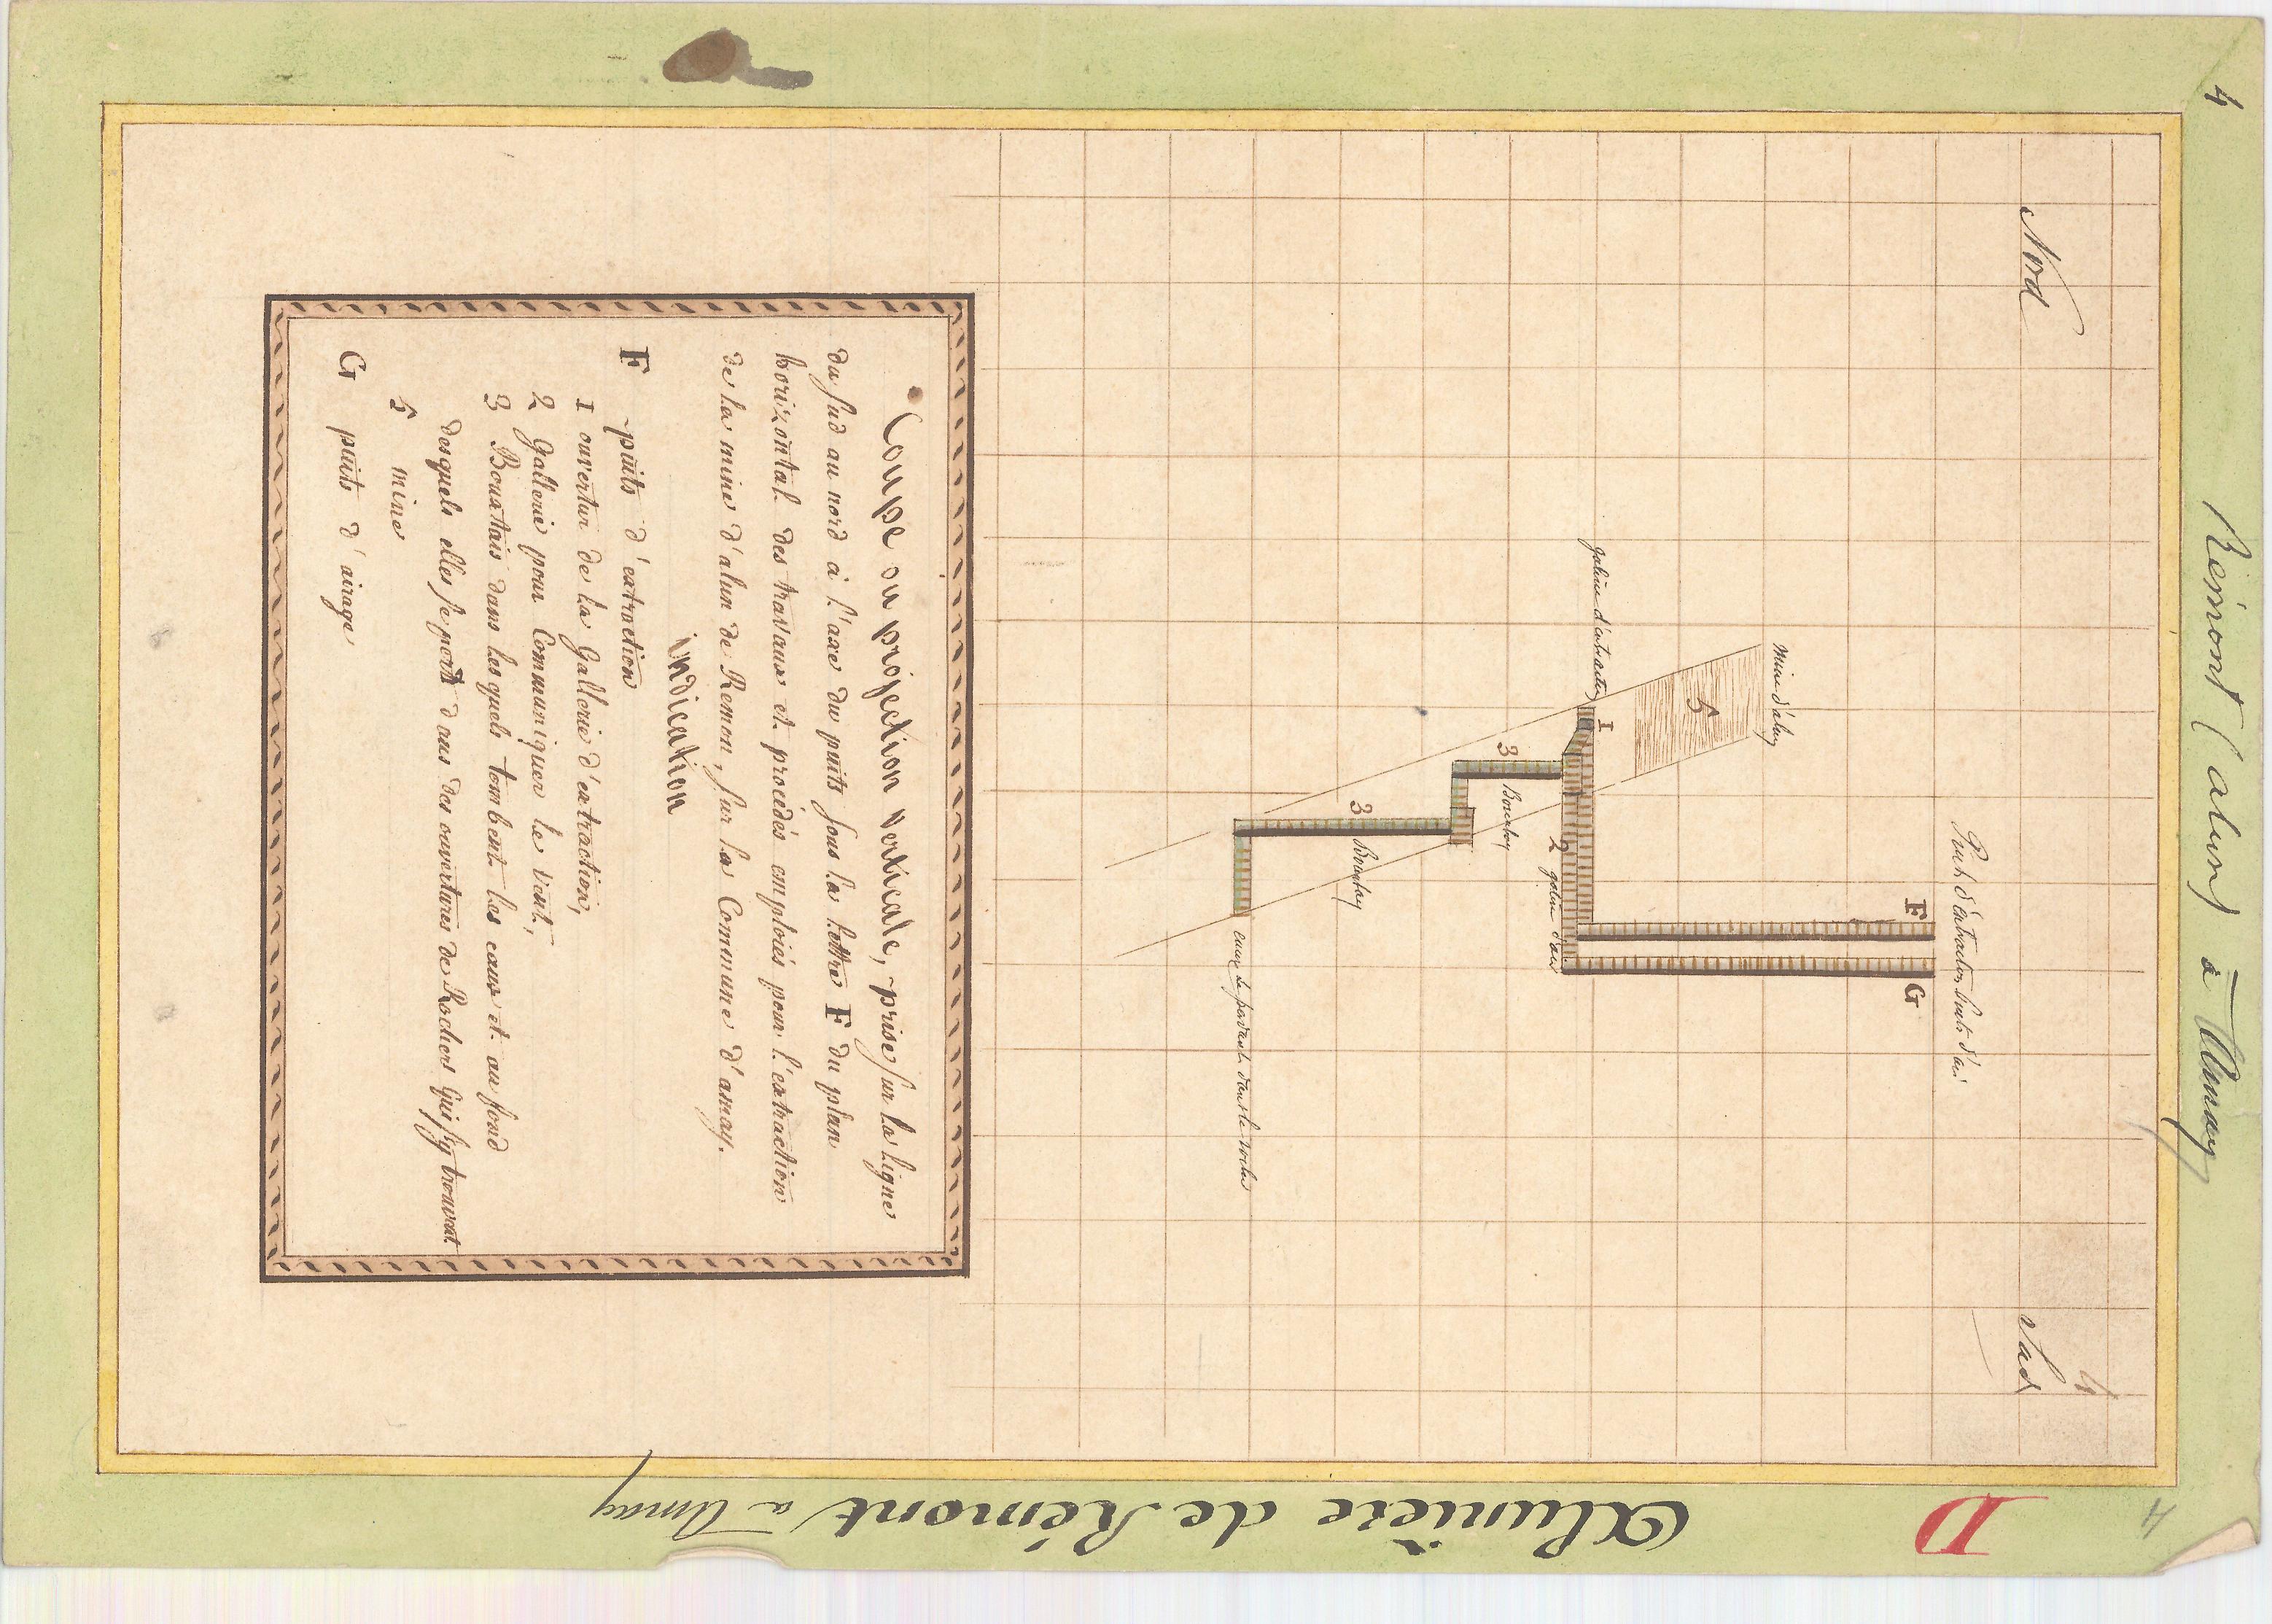 4
Rémont (alun) à Amay
4
Nord
Sud
Puits d'extraction buse d'air
F
G
mine d'alun
5
galerie d'extraction
1
2 galerie d'air
3
Bouxhay
3
Bouxhay
eaux se perdant dans le rocher
Coupe ou projection verticale, prise sur la ligne
du sud au nord à l'axe du puits sous la lettre F du plan
horizontal des travaux et procédés emploiés pour l'extraction
de la mine d'alun de Remon, sur la Commune d'amay.
indication
F puits d'extraction
1 ouvertur de la Gallerie d'extraction,
2 Gallerie pour Communiquer le Vent,
3 Bouxtais dans lesquels tombent les eaux et au fond
desquels elles se port dans des ouvertures de Rochers qui s'y trouvent
5 mine
G puits d'airage
D
Alunière de Rémont à Amay
4